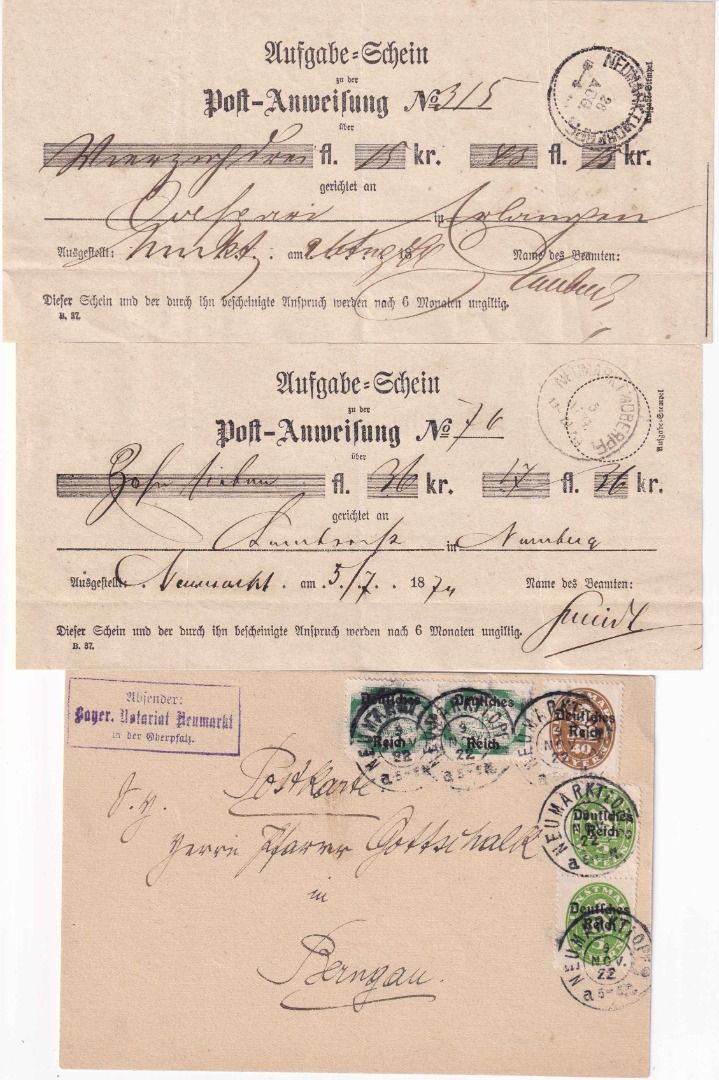 Aufgabe-Schein
zu der
Post-Anweisung No 315
über
Vierzigdrei fl. 15 kr. 43 fl. 15 kr.
gerichtet an
in Erlangen
Ausgestellt: Nmkt. am 26 Aug 18 Name des Beamten:
Dieser Schein und der durch ihn bescheinigte Anspruch werden nach 6 Monaten ungiltig.
B. 37.
NEUMARKT I/D OBERPF.
26
AUG
Aufgabe-Stempel
Aufgabe-Schein
zu der
Post-Anweisung No 76
über
Zehn sieben fl. 36 kr. 17 fl. 36 kr.
gerichtet an
in Nürnberg
Ausgestellt: Neumarkt. am 5/7. 1874 Name des Beamten:
Schmidt
Dieser Schein und der durch ihn bescheinigte Anspruch werden nach 6 Monaten ungiltig.
B. 37.
NEUMARKT I/D OBERPF.
Aufgabe-Stempel
Absender:
Bayer. Notariat Neumarkt
in der Oberpfalz.
Deutsches
Reich
Deutsches
Reich
Deutsches
Reich
40
NEUMARKT
NOV.
22
Postkarte
Herrn Pfarrer Gottschalk
in
Berngau.
Deutsches
Reich
NEUMARKT
22
Deutsches
Reich
NEUMARKT
NOV.
22